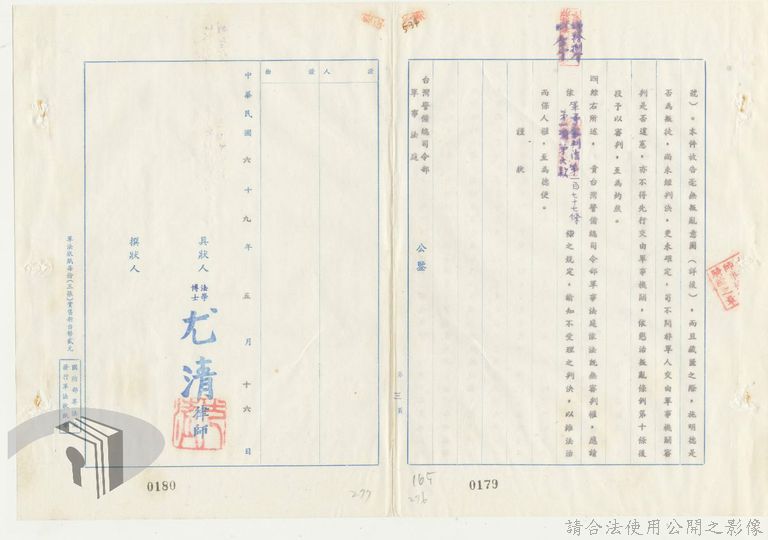 號)。本件被告毫無叛亂意圖(詳後),而且藏匿之際,施明德是
否為叛徒,尚未經判決,更未確定,苟不問非軍人交由軍事機關審
判是否違憲,亦不得先行交由軍事機關,依懲治叛亂條例第十條後
段予以審判,至為灼然。
四綜右所述, 貴台灣警備總司令部軍事法庭依法既無審判權,應請
依軍事審判法第一百七十七條
第一項第六款
條之規定,諭知不受理之判決,以維法治
而保人權,至為德便。
謹狀
台灣警備總司令部
軍事法庭 公鑒
第三頁
0179
165
276
證人
證物
中華民國六十九年五月十六日
具狀人 法學博士 尤清 律師
撰狀人
軍法狀紙每份(三張)實售新台幣貳元
0180
277
請合法使用公開之影像